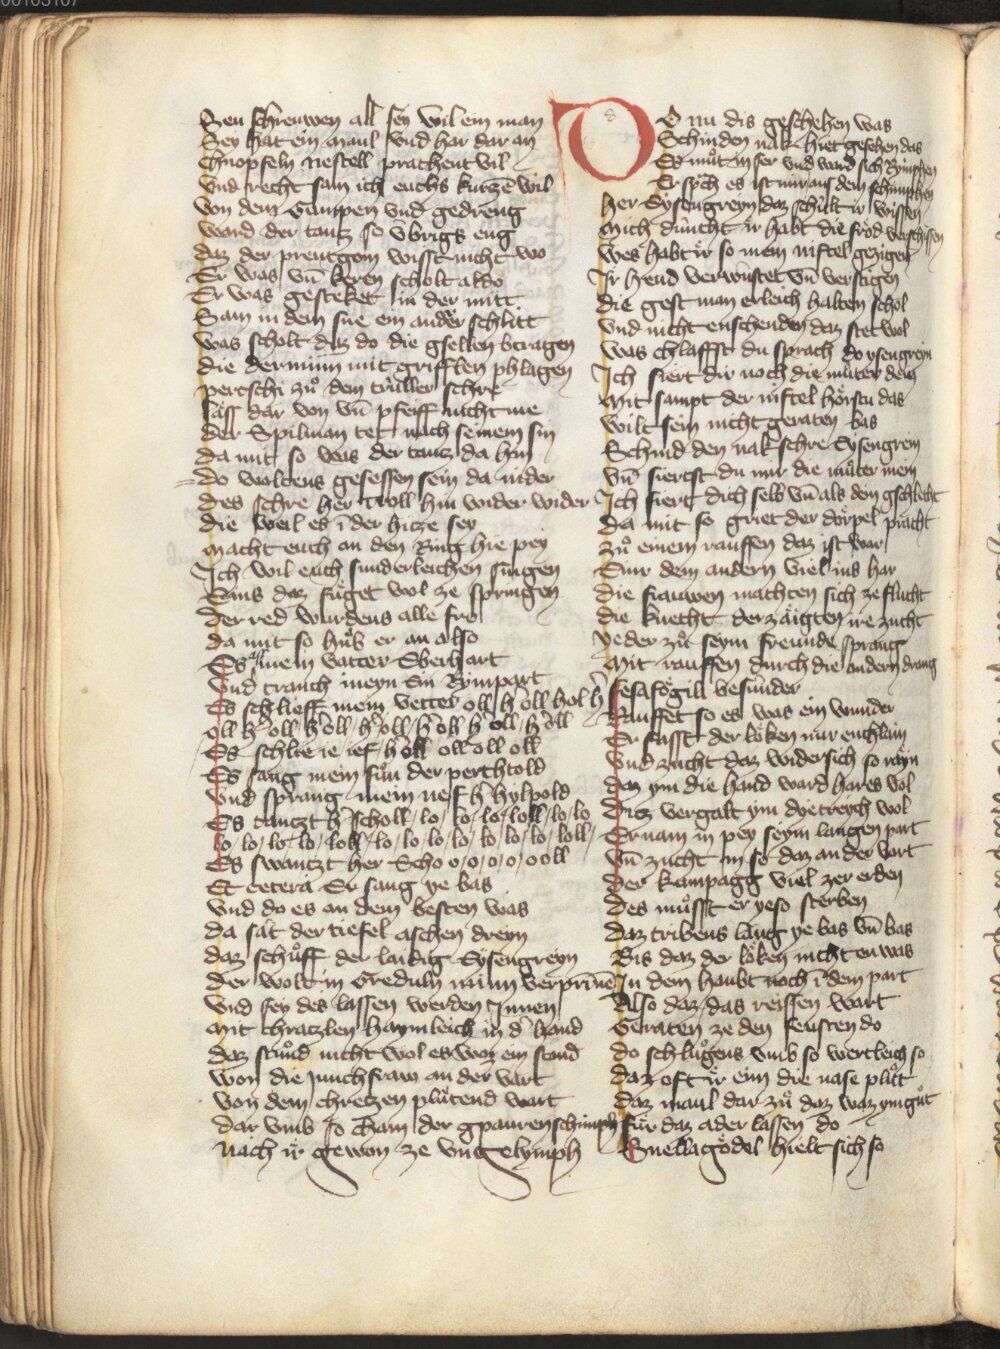 00103107
Seu schreuwen all sey wil em man
Sey hat ein maul vnd har dar an
Chnöpfeln nestell prachent vil
Vnd recht sam ich euchs kurze wil
Von dem Gumpen vnd gedreng
Ward der tantz so vbrigs eng
Daz der preutgom wisst nicht wo
Er was vn̄ keren scholt aldo
Er was gesteket in der mitt
Sam in dem sne ein ander schlitt
Was scholt daz do die gsellen betragen
Die derminn mit grifflen phlagen
Pertschi zuͦ dem trüller schre
Lass dar von vn̄ pfeiff nicht me
Der Spilman tet nach seinem sin
Da mit so was der tantz da hin
Do woltens gesessen sein da nider
Des schre her Troll hin wider wider
Die weil es ī der hitze sey
Macht euch an den Ring hie pey
Ich wil euch sunderleichen singen
Eins daz füget wol ze springen
Der red wurdens alle fro
Da mit so huͦb er an also
Es ass mein vatter Eberhart
Vnd tranch meyn Em Rympart
Es schlieff mein vetter oll h oll hol h
oll h oll h oll h oll h oll h oll h oll
Es schlie ie ief h oll oll oll oll
Es sang mein sun der perchtold
Vnd sprang mein nef h hylpold
Es tantzt h scholl lo lo lo loll lo lo
lo lo lo lo loll lo lo lo lo lo lo lo loll
Es swantzt her Scho o o o o oll
Et cetera Er sang ye bas
Vnd do es an dem besten was
Da sät der tiefel aschen dreyn
Daz schuͦff der laidig Eysengreyn
Der wolt in Gredulen minn verprinnē
Vnd sey des lassen werden Innen
Mit chratzlen haymleich in d hand
Daz stuͦnd nicht wol es waz em schand
Won die junchfraw an der vart
Von dem chretzen plütend wart
Dar vmb so cham der gpauren schimph
Nach ir gewon ze vngelymph
Do nu dis geschehen was
Schinden nak hiet gesehen das
Er muͦt in ser vnd ward sich rimphen
Er spͣch es ist nir aus dem schimphen
Her Eysengreyn daz schült ir wissen
Mich duncht ir habt die fröd verschissen
Wes habt ir so mein niftel gezigen
Ir hend verwüstet vn̄ verstigen
Die gest man erleich halten schol
Vnd nicht enschenden daz stet wol
Was chlaffst du sprach do ysengreyn
Ich siert dir noch die muͦter dein
Mit sampt der niftel hörstu das
Wilt sein nicht geraten bas
Schind den nak schre Eysengreyn
Vn̄ siertst du mir die muͦter mein
Ich siert dich selb vn̄ als dein gschlecht
Da mit so griet der dörpel pracht
Zuͦ einem rauffen daz ist war
Eim dem andern viel ins har
Die frauwen machten sich ze flucht
Die knecht derzaigten ire zucht
Yeder zuͦ seym freunde sprang
Mit rauffen durch die andern drang
Fesafögili besunder
Rauffet so es was ein wunder
Er fasst der löken nür euchlain
Vnd zucht daz wider sich so rayn
Daz ym die hand ward hares vol
Diez vergalt ym dyetreych wol
Er nam in pey seym langen part
Vn̄ zucht in so daz an der vart
Der kampagg viel zer erden
Des muͦsst er yeso sterben
Daz tribens lang ye bas vn̄ bas
Bis daz der löken nicht en was
In dem haubt noch ī dem part
Also daz das reissen wart
Geraten ze den feusten do
Do schluͦgens vmb so wertleich so
Daz oft ir eim die nase pluͦt
Daz maul dar zuͦ daz waz ym guͦt
Für daz ader lassen do
Snellagödel hielt sich so